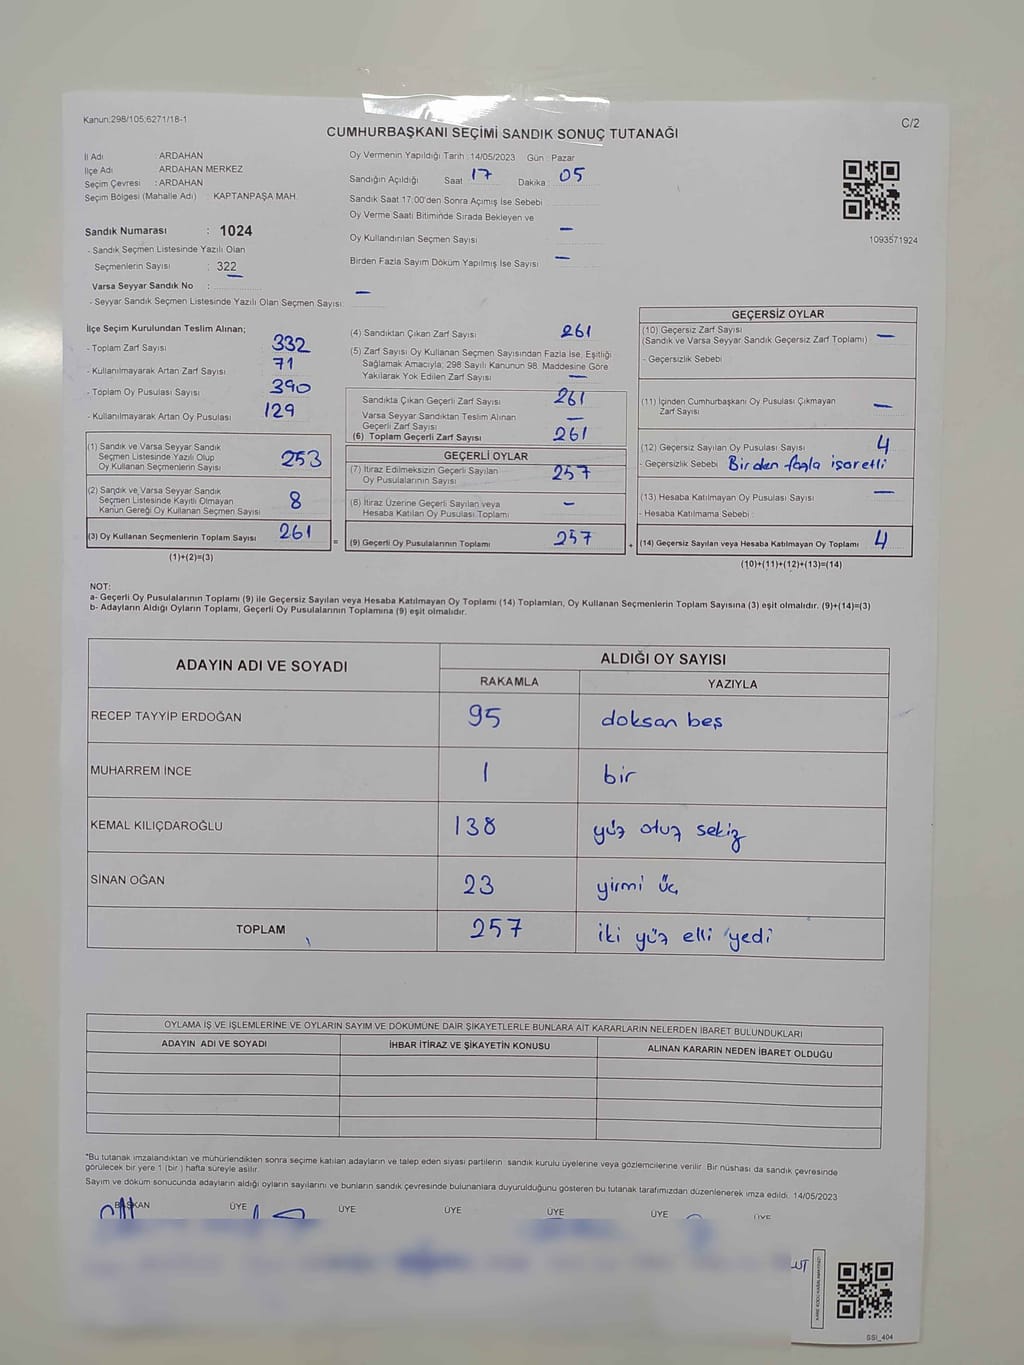 Kanun:298/105;6271/18-1
C/2
CUMHURBAŞKANI SEÇİMİ SANDIK SONUÇ TUTANAĞI
İl Adı : ARDAHAN
İlçe Adı : ARDAHAN MERKEZ
Seçim Çevresi : ARDAHAN
Seçim Bölgesi (Mahalle Adı) : KAPTANPAŞA MAH.
Sandık Numarası : 1024
- Sandık Seçmen Listesinde Yazılı Olan
Seçmenlerin Sayısı : 322
Varsa Seyyar Sandık No : —
- Seyyar Sandık Seçmen Listesinde Yazılı Olan Seçmen Sayısı: —
Oy Vermenin Yapıldığı Tarih : 14/05/2023 Gün : Pazar
Sandığın Açıldığı Saat 17 Dakika : 05
Sandık Saat 17.00'den Sonra Açımış İse Sebebi
Oy Verme Saati Bitiminde Sırada Bekleyen ve
Oy Kullandırılan Seçmen Sayısı —
Birden Fazla Sayım Döküm Yapılmış İse Sayısı —
1093571924
İlçe Seçim Kurulundan Teslim Alınan;
- Toplam Zarf Sayısı : 332
- Kullanılmayarak Artan Zarf Sayısı : 71
- Toplam Oy Pusulası Sayısı : 390
- Kullanılmayarak Artan Oy Pusulası : 129
(1) Sandık ve Varsa Seyyar Sandık
Seçmen Listesinde Yazılı Olup
Oy Kullanan Seçmenlerin Sayısı 253
(2) Sandık ve Varsa Seyyar Sandık
Seçmen Listesinde Kayıtlı Olmayan
Kanun Gereği Oy Kullanan Seçmen Sayısı 8
(3) Oy Kullanan Seçmenlerin Toplam Sayısı 261
(1)+(2)=(3)
(4) Sandıktan Çıkan Zarf Sayısı 261
(5) Zarf Sayısı Oy Kullanan Seçmen Sayısından Fazla İse, Eşitliği
Sağlamak Amacıyla; 298 Sayılı Kanunun 98. Maddesine Göre
Yakılarak Yok Edilen Zarf Sayısı —
Sandıkta Çıkan Geçerli Zarf Sayısı 261
Varsa Seyyar Sandıktan Teslim Alınan
Geçerli Zarf Sayısı —
(6) Toplam Geçerli Zarf Sayısı 261
GEÇERLİ OYLAR
(7) İtiraz Edilmeksizin Geçerli Sayılan
Oy Pusulalarının Sayısı 257
(8) İtiraz Üzerine Geçerli Sayılan veya
Hesaba Katılan Oy Pusulası Toplamı —
= (9) Geçerli Oy Pusulalarının Toplamı 257
GEÇERSİZ OYLAR
(10) Geçersiz Zarf Sayısı
(Sandık ve Varsa Seyyar Sandık Geçersiz Zarf Toplamı) —
- Geçersizlik Sebebi :
(11) İçinden Cumhurbaşkanı Oy Pusulası Çıkmayan
Zarf Sayısı —
(12) Geçersiz Sayılan Oy Pusulası Sayısı 4
- Geçersizlik Sebebi Birden fazla işaretli
(13) Hesaba Katılmayan Oy Pusulası Sayısı —
- Hesaba Katılmama Sebebi :
+ (14) Geçersiz Sayılan veya Hesaba Katılmayan Oy Toplamı 4
(10)+(11)+(12)+(13)=(14)
NOT:
a- Geçerli Oy Pusulalarının Toplamı (9) ile Geçersiz Sayılan veya Hesaba Katılmayan Oy Toplamı (14) Toplamları, Oy Kullanan Seçmenlerin Toplam Sayısına (3) eşit olmalıdır. (9)+(14)=(3)
b- Adayların Aldığı Oyların Toplamı, Geçerli Oy Pusulalarının Toplamına (9) eşit olmalıdır.
ADAYIN ADI VE SOYADI ALDIĞI OY SAYISI
RAKAMLA YAZIYLA
RECEP TAYYİP ERDOĞAN 95 doksan beş
MUHARREM İNCE 1 bir
KEMAL KILIÇDAROĞLU 138 yüz otuz sekiz
SİNAN OĞAN 23 yirmi üç
TOPLAM 257 iki yüz elli yedi
OYLAMA İŞ VE İŞLEMLERİNE VE OYLARIN SAYIM VE DÖKÜMÜNE DAİR ŞİKAYETLERLE BUNLARA AİT KARARLARIN NELERDEN İBARET BULUNDUKLARI
ADAYIN ADI VE SOYADI İHBAR İTİRAZ VE ŞİKAYETİN KONUSU ALINAN KARARIN NEDEN İBARET OLDUĞU
"Bu tutanak imzalandıktan ve mühürlendikten sonra seçime katılan adayların ve talep eden siyasi partilerin sandık kurulu üyelerine veya gözlemcilerine verilir. Bir nüshası da sandık çevresinde
görülecek bir yere 1 (bir ) hafta süreyle asılır.
Sayım ve döküm sonucunda adayların aldığı oyların sayılarını ve bunların sandık çevresinde bulunanlara duyurulduğunu gösteren bu tutanak tarafımızdan düzenlenerek imza edildi. 14/05/2023
BAŞKAN ÜYE ÜYE ÜYE ÜYE ÜYE ÜYE
SSİ_404